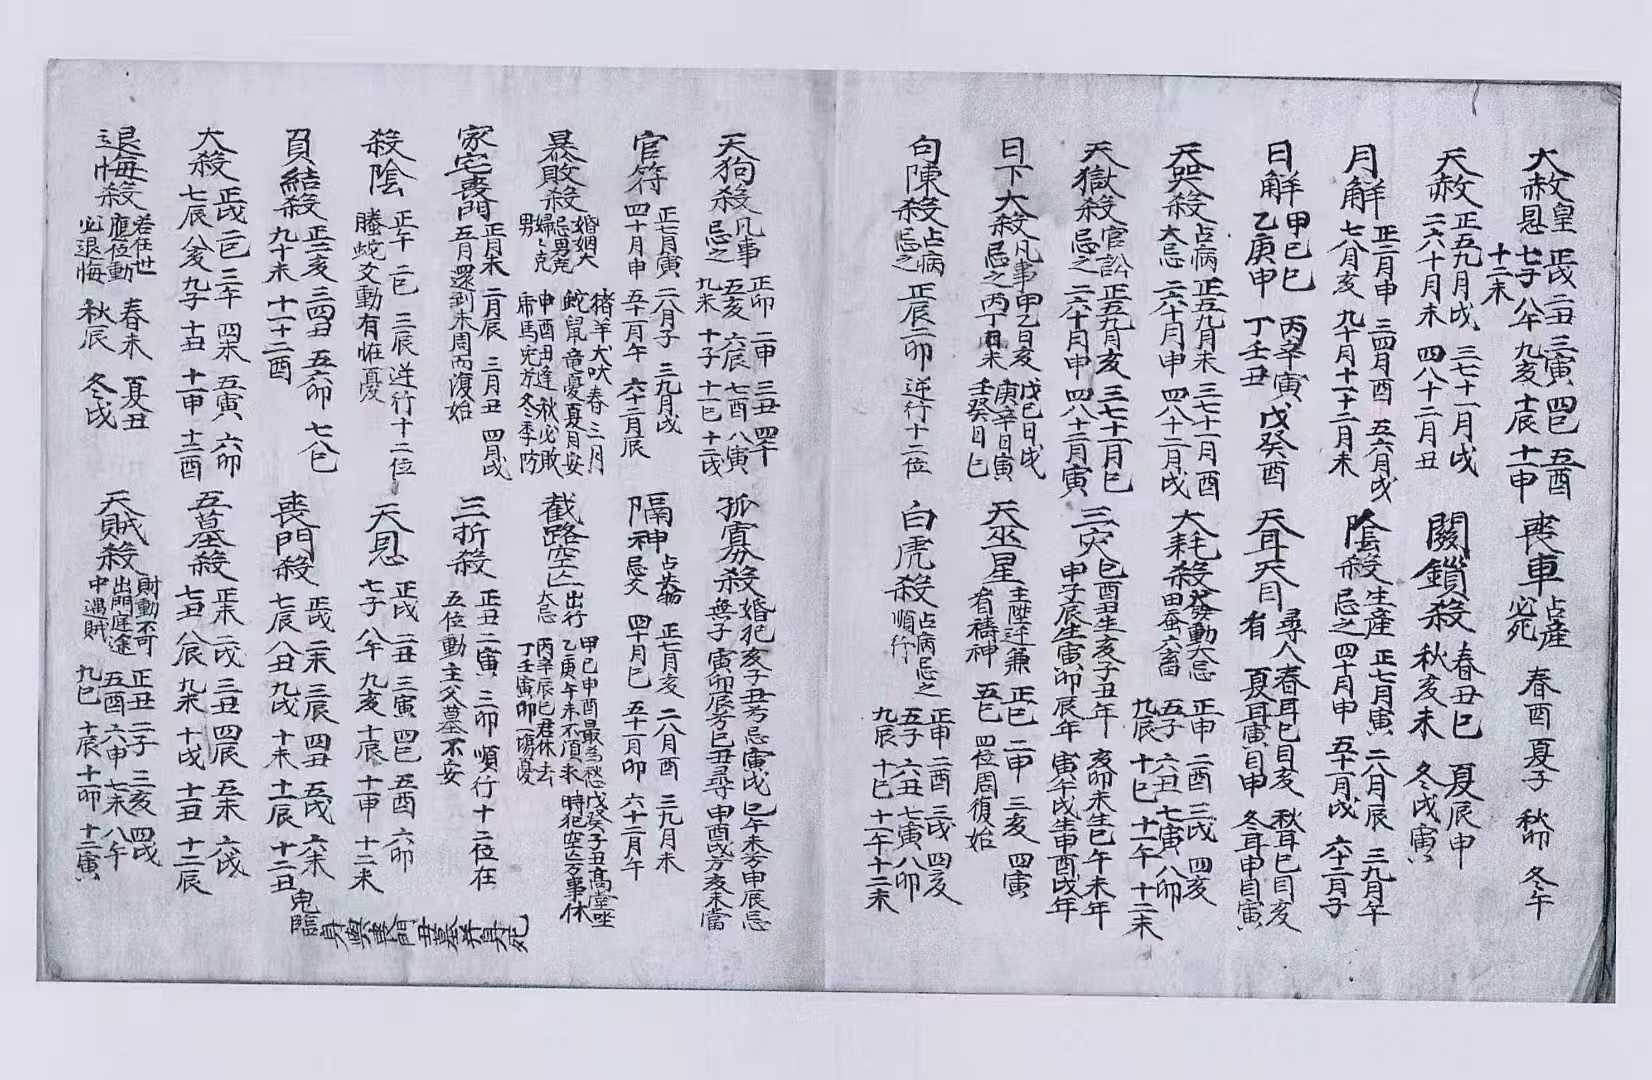 大赦 皇恩 正戌 二丑 三寅 四巳 五酉 六卯
七子 八午 九亥 十辰 十一申 十二未
喪車 占產必死 春酉 夏子 秋卯 冬午
天赦 正五九月戌 三七十一月戌
二六十月未 四八十二月丑
関鎖殺 春丑巳 夏辰申
秋亥未 冬戌寅
月解 正二月申 三四月酉 五六月戌
七八月亥 九十月午 十一十二月未
陰殺 生產忌之 正七月寅 二八月辰 三九月午
四十月申 五十一月戌 六十二月子
日解 甲己巳 丙辛寅 戊癸酉
乙庚申 丁壬丑
天耳天目 尋人有 春耳巳目亥 秋耳巳目亥
夏耳寅目申 冬耳申目寅
天哭殺 占病大忌 正五九月未 三七十一月酉
二六十月申 四八十二月戌
大耗殺 發動大忌田蚕六畜 正申 二酉 三戌 四亥
五子 六丑 七寅 八卯
九辰 十巳 十一午 十二未
天獄殺 官訟忌之 正五九月亥 三七十一月巳
二六十月申 四八十二月寅
三灾 巳酉丑生亥子丑年 亥卯未生巳午未年
申子辰生寅卯辰年 寅午戌生申酉戌年
日下大殺 凡事忌之 甲乙日亥 戊己日戌
丙丁日未 庚辛日寅
壬癸日巳
天巫星 主陞迁兼有禱神 正巳 二申 三亥 四寅
五巳 四位周復始
句陳殺 占病忌之 正辰二卯 逆行十二位
白虎殺 占病忌之順行 正申 二酉 三戌 四亥
五子 六丑 七寅 八卯
九辰 十巳 十一午 十二未
天狗殺 凡事忌之 正卯 二申 三丑 四午
五亥 六辰 七酉 八寅
九未 十子 十一巳 十二戌
孤寡殺 婚犯無子 亥子丑方忌寅戌 巳午未方申辰忌
寅卯辰方巳丑尋 申酉戌方亥未當
官符 正七月寅 二八月子 三九月戌
四十月申 五十一月午 六十二月辰
隔神 占葬忌交 正七月亥 二八月酉 三九月未
四十月巳 五十一月卯 六十二月午
暴敗殺 婚姻大忌男克婦婦克男 猪羊犬吠春三月
蛇鼠竜憂夏月安
申酉丑逢秋必敗
虎馬兔方冬季防
截路空亡 出行大忌 甲己申酉最為愁 戊癸子丑高堂坐
乙庚午未不須求 時犯空亡万事休
丙辛辰巳君休去
丁壬寅卯一場憂
家宅喪門 正月未 二月辰 三月丑 四月戌
五月還到未周而復始
三折殺 正丑二寅 三卯 順行十二位在
五位動主父墓不安
殺陰 正午 二巳 三辰 逆行十二位
騰蛇交動有恠憂
天恩 正戌 二丑 三寅 四巳 五酉 六卯
七子 八午 九亥 十辰 十一申 十二未
負結殺 正二亥 三四丑 五六卯 七八巳
九十未 十一十二酉
喪門殺 正戌 二未 三辰 四丑 五戌 六未
七辰 八丑 九戌 十未 十一辰 十二丑
鬼臨身與喪門五墓并具死
大殺 正戌 二巳 三午 四未 五寅 六卯
七辰 八亥 九子 十丑 十一申 十二酉
五墓殺 正未 二戌 三丑 四辰 五未 六戌
七丑 八辰 九未 十戌 十一丑 十二辰
退悔殺 若在世應位動必退悔 春未 夏丑
秋辰 冬戌
天賊殺 財動不可出門庭途中遇賊 正丑 二子 三亥 四戌
五酉 六申 七未 八午
九巳 十辰 十一卯 十二寅